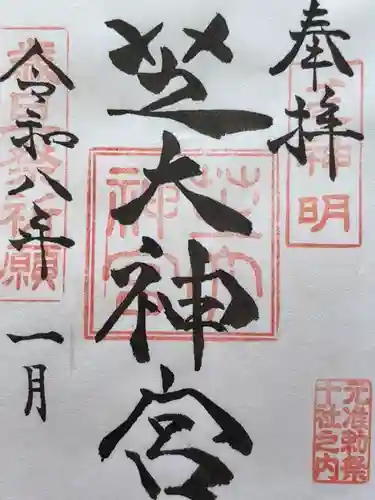 奉拝
神明
芝大神宮
芝大神宮
令和八年
一月
祈願
元准勅祭
十社之内